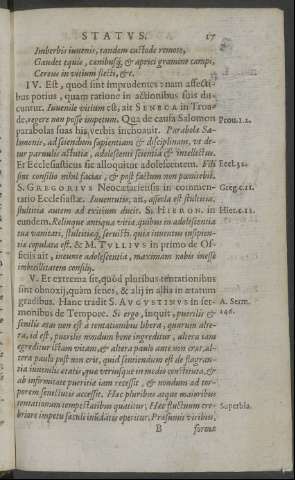 STATVS. 17
Imberbis iuuenis, tandem custode remoto,
Gaudet equis, canibusq́; & aprici gramine campi,
Cereus in vitium flecti, &c.
IV. Est, quod sint imprudentes: nam affecti-
bus potius, quam ratione in actionibus suis du-
cuntur. Iuuenile vitium est, ait SENECA in Troa-
de, regere non posse impetum. Qua de causa Salomon
parabolas suas his verbis inchoauit. Parabolæ Sa- Prou.1.1.
lomonis, ad sciendam sapientiam & disciplinam, vt de-
tur paruulis astutia, adolescenti scientia & intellectus.
Et Ecclesiasticus sic alloquitur adolescentem. Fili Eccl.32.
sine consilio nihil facias, & post factum non pœnitebis.
S. GREGORIVS Neocæsariensis in commen- Greg.c.11.
tatio Ecclesiastæ. Iuuentutis, ait, assecla est stultitia,
stultitia autem ad exitium ducit. S. HIERON. in Hier.c.11.
eundem. Relinque antiqua vitia, quibus in adolescentia
tua vanitati, stultitiæq́; seruisti. quia iuuentus insipien-
tia copulata est, & M. TVLLIVS in primo de Of-
ficiis ait, ineunte adolescentia, maximam nobis inesse
imbecillitatem consilij.
V. Et extrema sit, quòd pluribus tentationibus
sint obnoxij, quàm senes, & alij in aliis ætatum
gradibus. Hanc tradit S. AVGVSTINVS in ser- A. Serm.
monibus de Tempore. Si ergo, inquit, puerilis & 246.
senilis ætas non est à tentationibus libera, quarum alte-
ra, id est, puerilis nondum bene ingreditur, altera iam
egreditur istam vitam, & altera paulo ante non erat, al-
tera paulò post non erit, quid sentiendum est de flagran-
tia iuuenilis ætatis, quæ veriusque in medio constituta, &
ab infirmitate pueritiæ iam recessit, & nondum ad tor-
porem senectutis accessit. Hæc pluribus atque maioribus
tentationum tempestatibus quatitur, Hæc fluctuum cre-
briore impetu sæculi inūdātis operitur. Præsumit viribus, Superbia.
B formæ